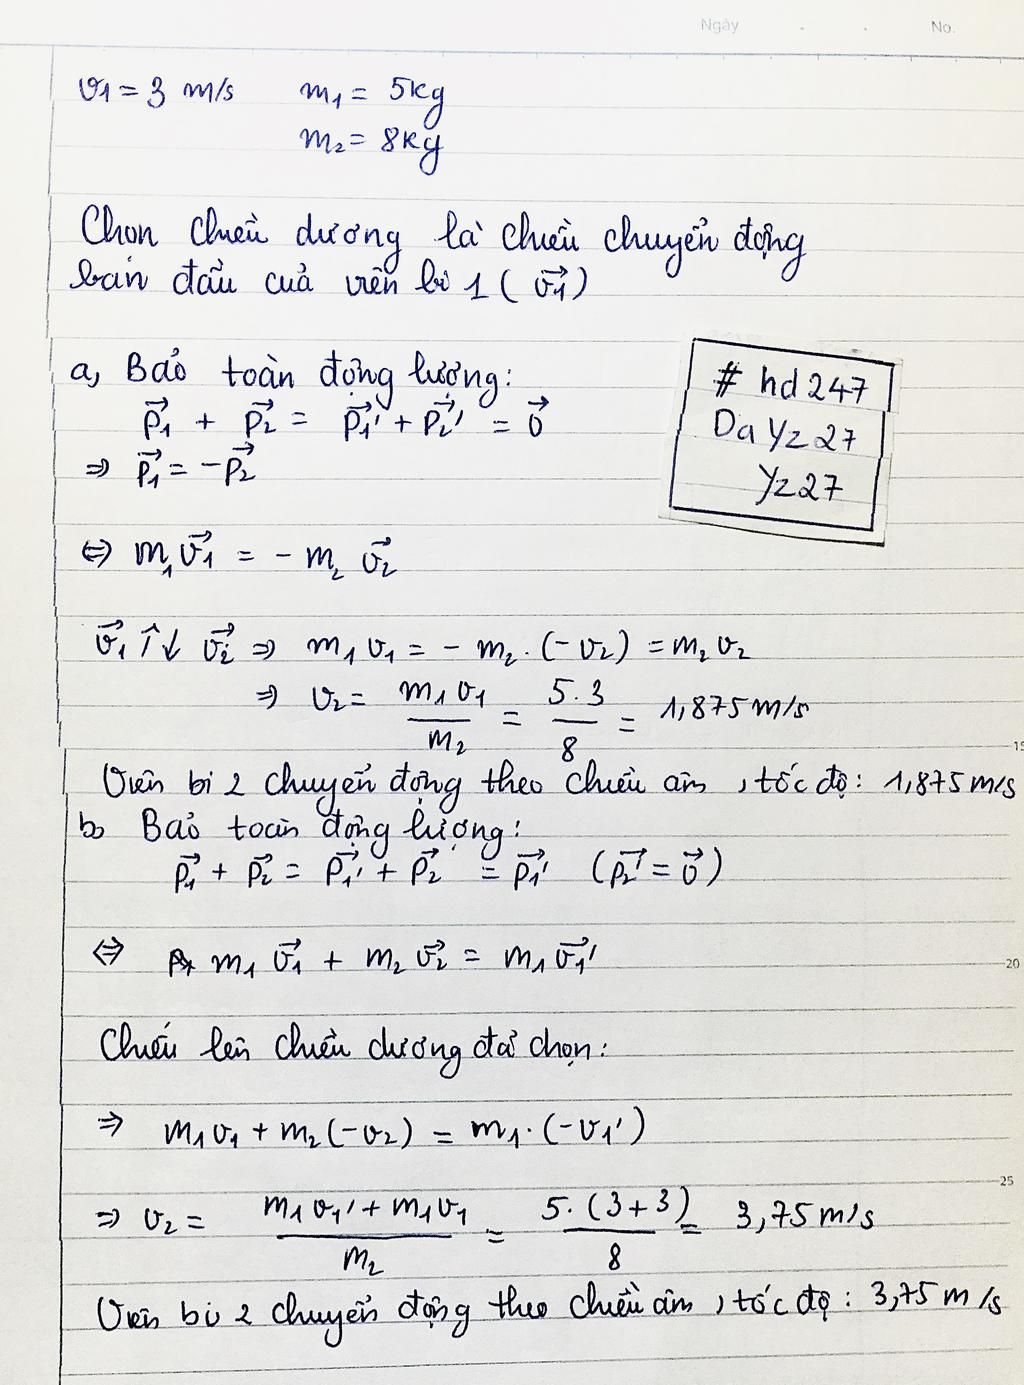 Ngày . . No.
v1 = 3 m/s m1 = 5kg
m2 = 8kg
Chọn chiều dương là chiều chuyển động
ban đầu của viên bi 1 ( v⃗1)
a, Bảo toàn động lượng:
p⃗1 + p⃗2 = p⃗1' + p⃗2' = 0⃗
⇒ p⃗1 = -p⃗2
# hd247
DaYz27
Yz27
⇔ m1v⃗1 = - m2 v⃗2
v⃗1 ↑↓ v⃗2 ⇒ m1 v1 = - m2 . (-v2) = m2 v2
⇒ v2 = m1 v1 / m2 = 5.3 / 8 = 1,875 m/s
15
Viên bi 2 chuyển động theo chiều âm , tốc độ: 1,875 m/s
b, Bảo toàn động lượng:
p⃗1 + p⃗2 = p⃗1' + p⃗2' = p⃗1' (p⃗2' = 0⃗)
⇔ m1 v⃗1 + m2 v⃗2 = m1 v⃗1'
20
Chiếu lên chiều dương đã chọn:
⇒ m1v1 + m2(-v2) = m1.(-v1')
25
⇒ v2 = m1 v1' + m1v1 / m2 = 5.(3+3) / 8 = 3,75 m/s
Viên bi 2 chuyển động theo chiều âm , tốc độ : 3,75 m/s